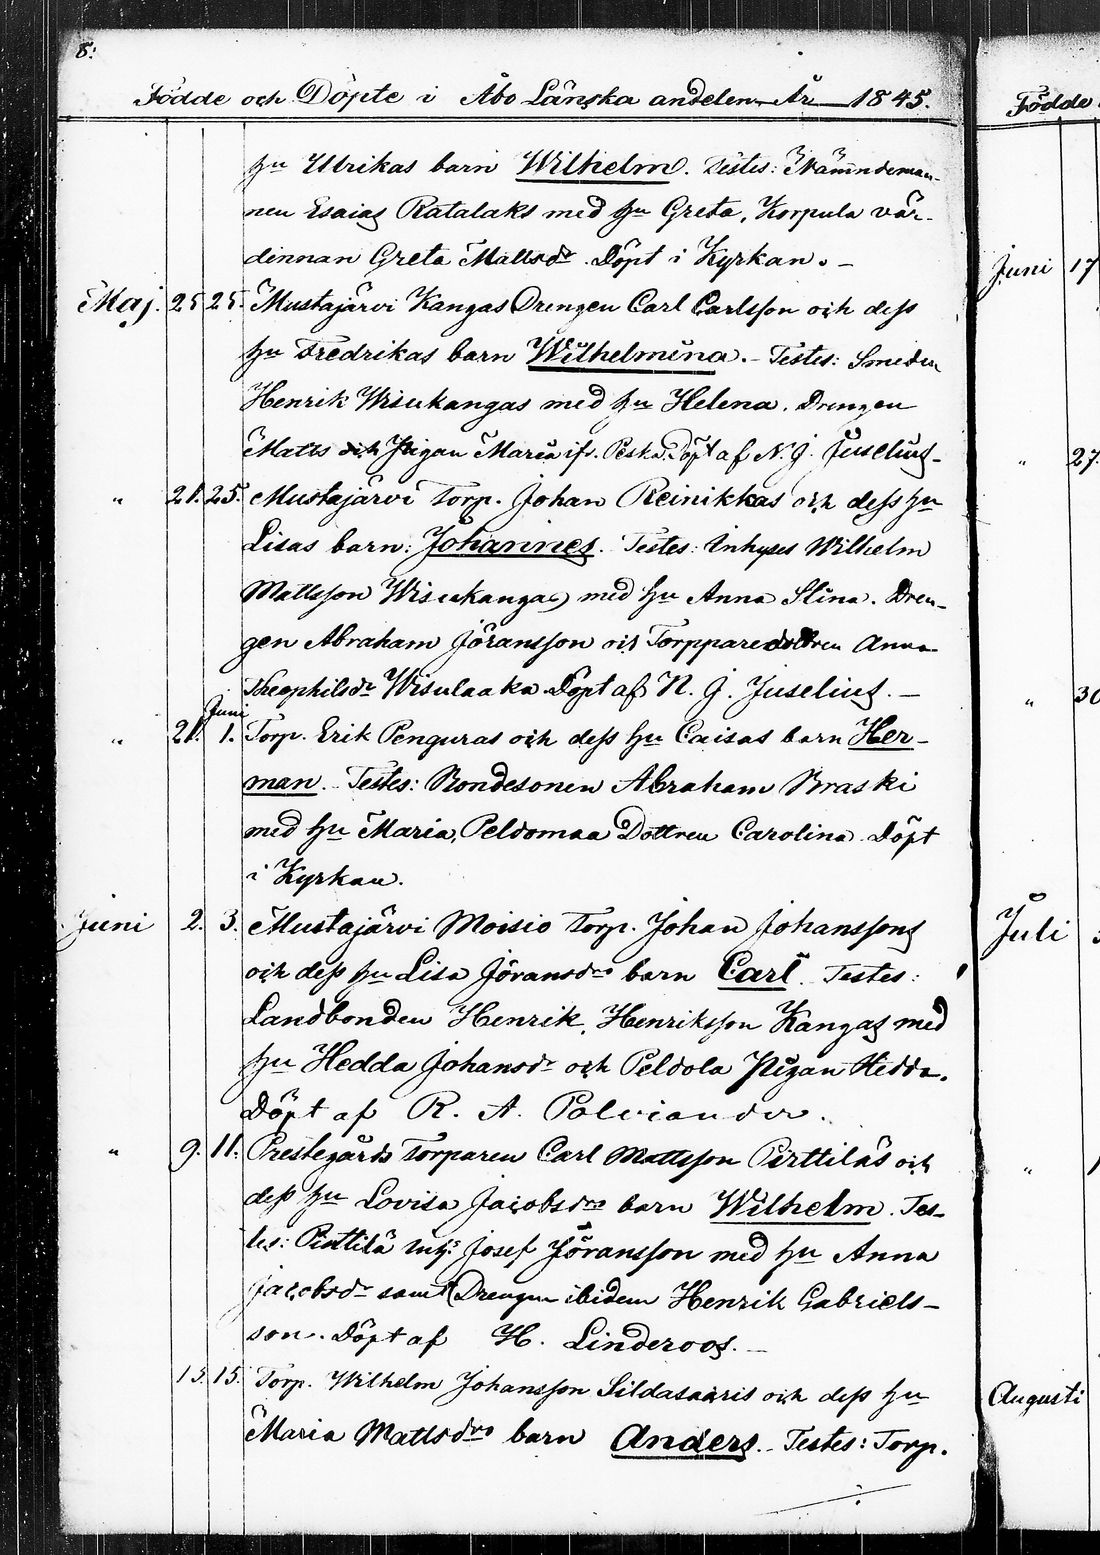 8:
Födde och Döpte i Åbo Länska andelen År 1845.
hu Ulrikas barn Wilhelm. Testes: Nämndeman-
nen Esaias Ratalaks med hu Greta, Korpula vär-
dinnan Greta Mattsdr. Döpt i Kyrkan. -
Maj. 25 25. Mustajärvi Kangas Drengen Carl Carlsson och dess
hu Fredrikas barn Wilhelmina. - Testes: Smeden
Henrik Wisukangas med hu Helena. Drengen
Matts och Pigan Maria ifr. Döpt af N. J. Juselius -
" 21. 25. Mustajärvi Torp. Johan Reinikkas och dess hu
Lisas barn: Johannes. Testes: Inhyses Wilhelm
Mattsson Wisukangas med hu Anna Stina. Dren-
gen Abraham Jöransson och Torpparedottren Anna
Theophilsdr Wisulaaka Döpt af N. J. Juselius. -
" 21. Juni 1. Torp. Erik Penguras och dess hu Caisas barn Her-
man. Testes: Bondesonen Abraham Braski
med hu Maria, Peldomaa Dottren Carolina. Döpt
i Kyrkan.
Juni 2. 3. Mustajärvi Moisio Torp. Johan Johanssons
och dess hu Lisa Jöransdrs barn Carl. Testes:
Landbonden Henrik Henriksson Kangas med
hu Hedda Johansdr och Peldola Pigan Hedda.
Döpt af R. A. Polviander.
" 9. 11. Prestegårds Torparen Carl Mattsson Pirttiläs och
dess hu Lovisa Jacobsdrs barn Wilhelm. Tes-
tes: Pirttilä Inhs Josef Jöransson med hu Anna
Jacobsdr samt Drengen ibidem Henrik Gabriels-
son. Döpt af H. Linderoos. -
15. 15. Torp. Wilhelm Johansson Sildasaaris och dess hu
Maria Mattsdrs barn Anders. Testes: Torp.
Födde
Juni 17
" 27.
" 30
Juli
"
Augusti